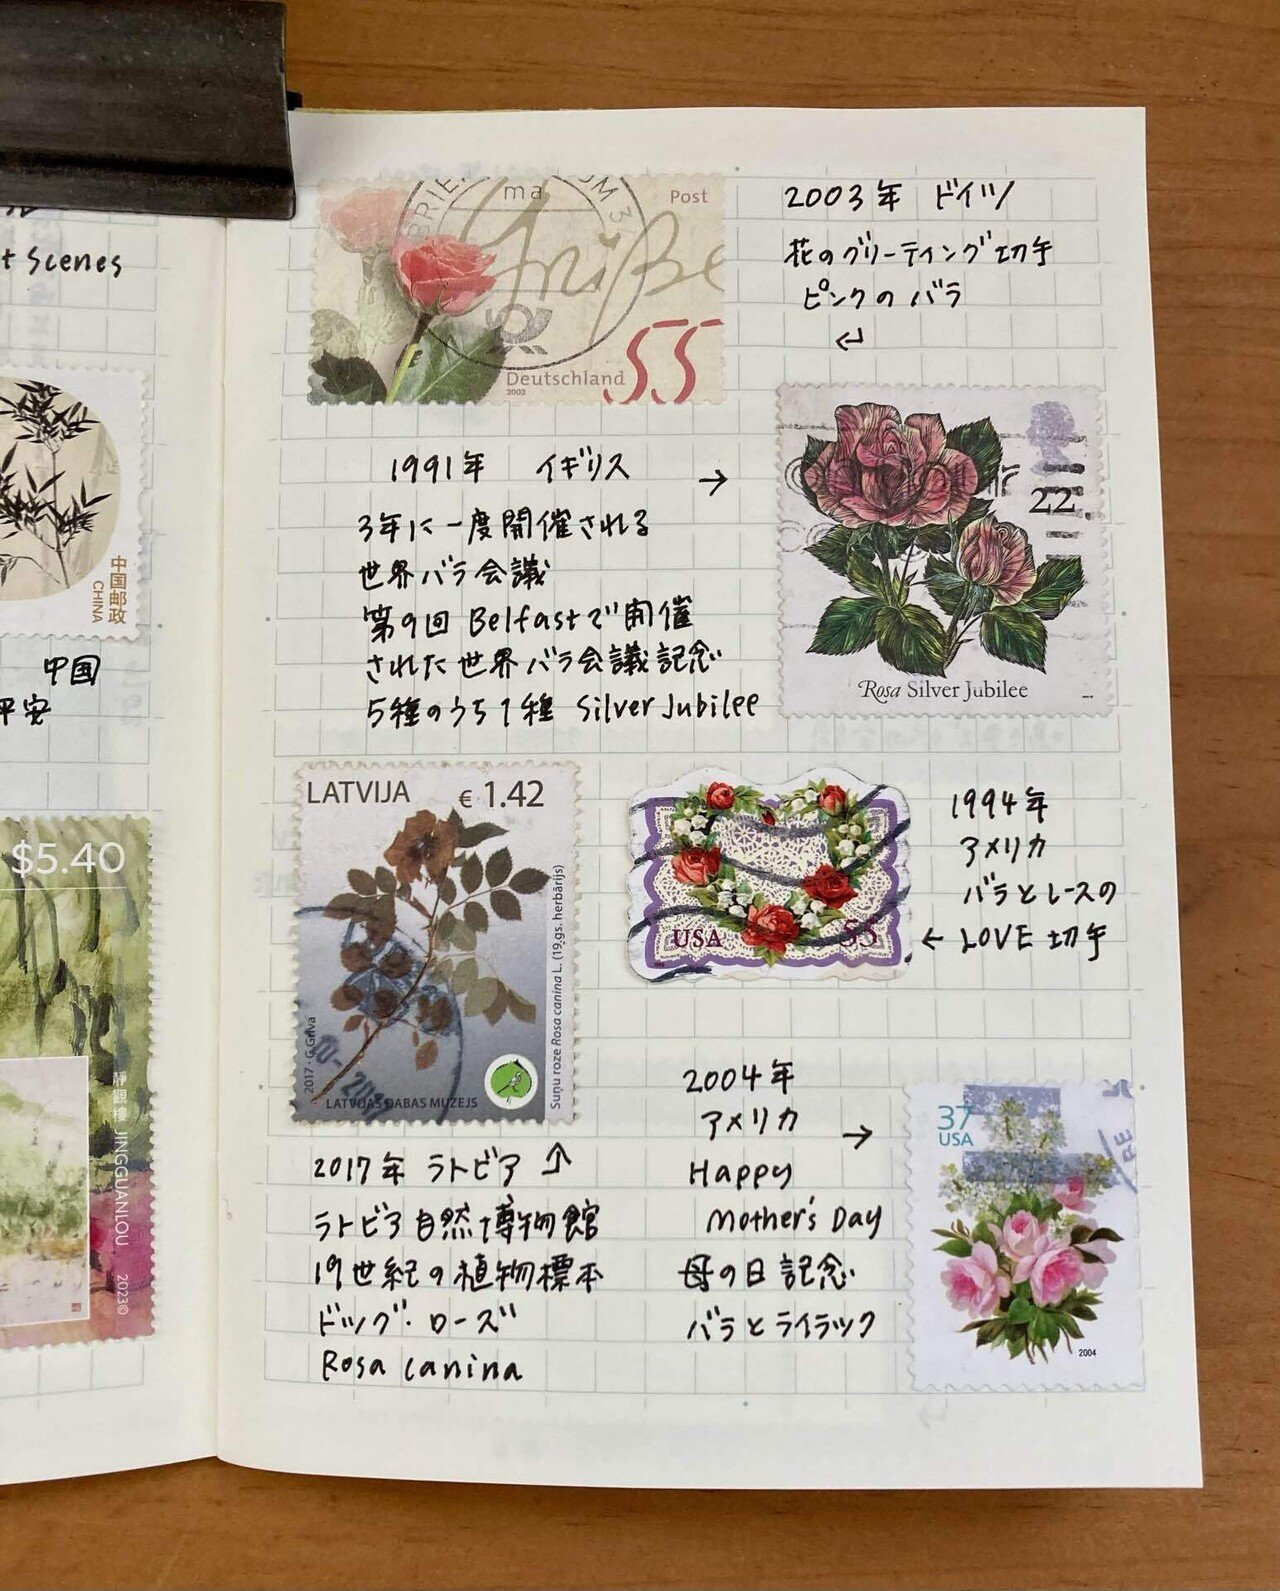 t Scenes
中国邮政
CHINA
中国
平安
$5.40
靜觀樓 JINGGUANLOU 2023©
ma
Post
Grüße
Deutschland
2003
55
2003年 ドイツ
花のグリーティング切手
ピンクのバラ
1991年 イギリス
3年に一度開催される
世界バラ会議
第9回 Belfastで開催
された世界バラ会議記念
5種のうち1種 Silver Jubilee
22
Rosa Silver Jubilee
LATVIJA € 1.42
Suņu roze Rosa canina L. (19.gs. herbārijs)
2017 · G.Grīva
LATVIJAS DABAS MUZEJS
USA
1994年
アメリカ
バラとレースの
← LOVE 切手
2017年 ラトビア
ラトビア自然博物館
19世紀の植物標本
ドッグ・ローズ
Rosa canina
2004年
アメリカ
Happy
Mother's Day
母の日記念
バラとライラック
37
USA
2004